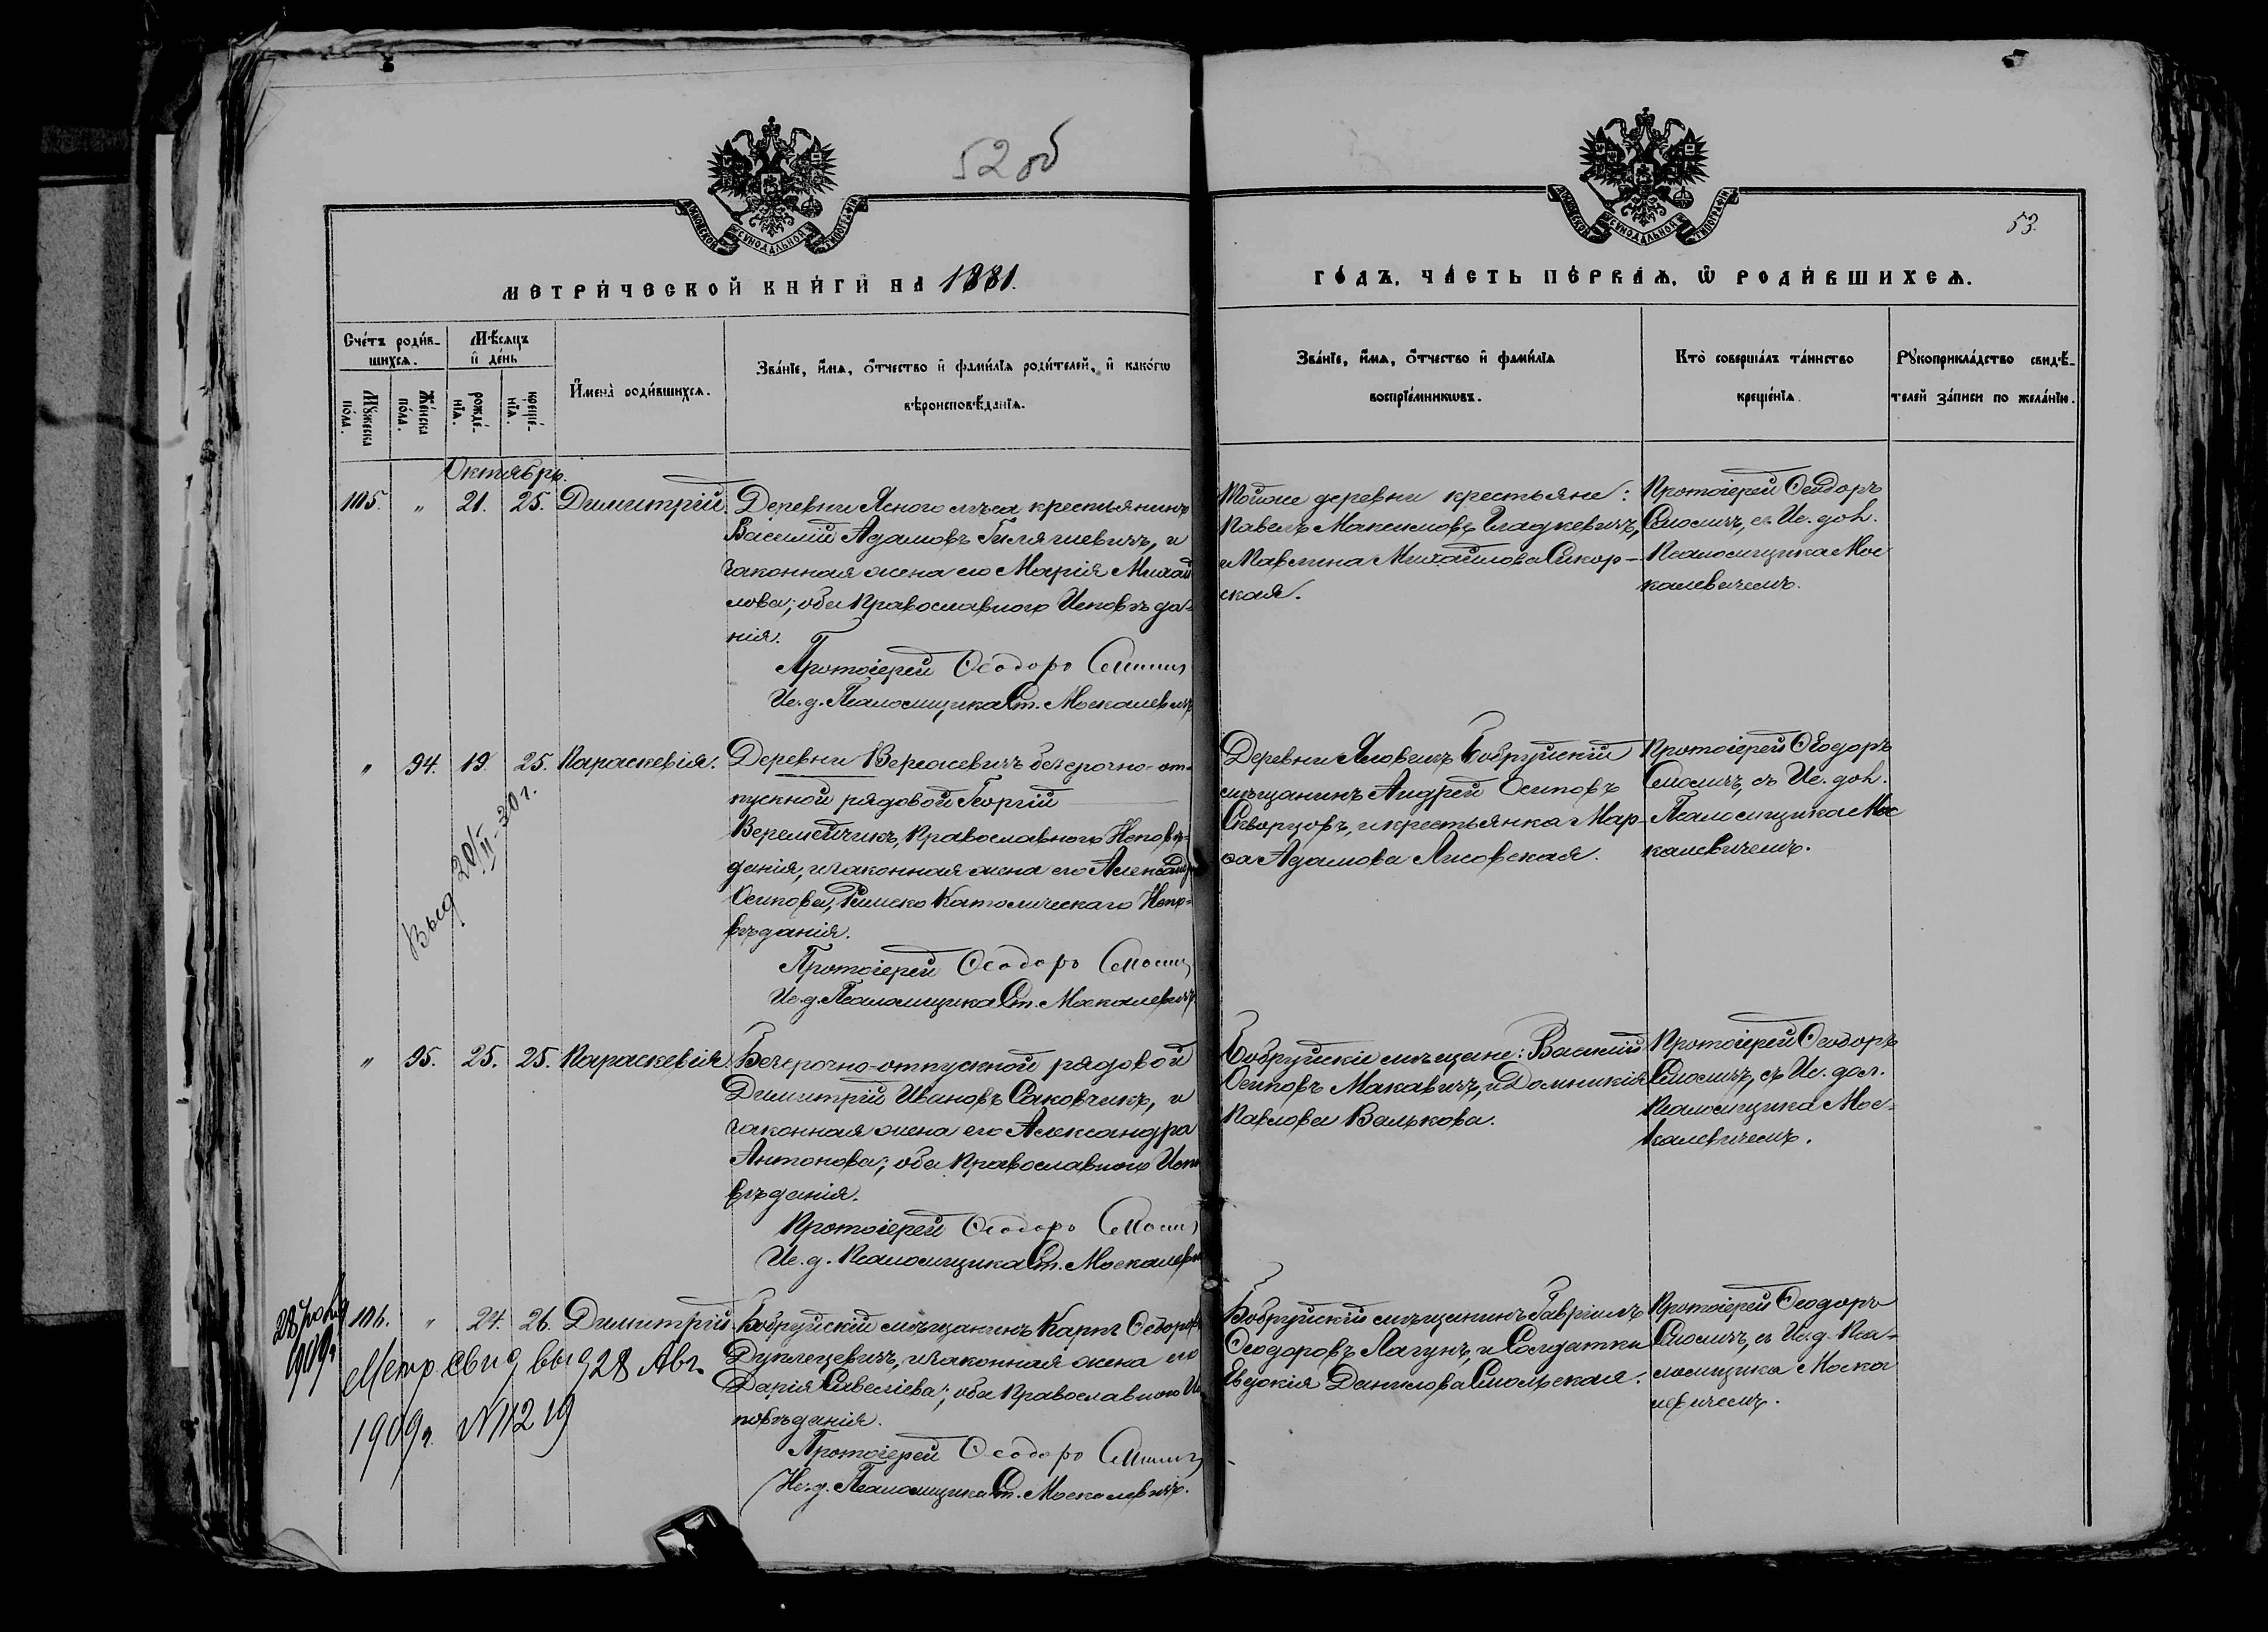 52 об
53.
МЕТРИЧЕСКОЙ КНИГИ НА 1881.
ГОДЪ. ЧАСТЬ ПЕРВАЯ. Ѿ РОДИВШИХСЯ.
Счетъ родив-
шихся.
Мѣсяцъ
и день
Мꙋжеска
пола.
Женска
пола.
рожде-
нїя.
креще-
нїя.
Имена родившихся.
Званїе, имя, отчество и фамилїя родителей, и какогѡ
вѣроисповѣданїя.
Званїе, имя, отчество и фамилїя
воспрїемникѡвъ.
Кто совершалъ таинство
крещенїя.
Рꙋкоприкладство свидѣ-
телей записи по желанїю.
Октябрь.
105. " 21. 25. Димитрій
Деревни Ясного лѣса крестьянинъ
Василій Адамовъ, и
законная жена его Марія Михай
лова; оба Православного Исповѣда-
нія.
Протоіерей Ѳеодоръ Смоличъ
Ис. д. Псаломщика Ст. Москалевичъ
Тойже деревни крестьяне:
Павелъ Максимовъ Гладкевичъ,
и Павлина Михайлова Сикор-
ская.
Протоіерей Ѳеодоръ
Смоличъ, съ Ис. дол.
Псаломщика Мос
калевичемъ.
" 94. 19. 25. Параскевія.
Деревни безсрочно-от-
пускной рядовой Георгій
Веремейчикъ, Православного Исповѣ-
данія, и законная жена его Александра
Осипова, Римско Католическаго Испо-
вѣданія.
Протоіерей Ѳеодоръ Смоличъ
Ис. д. Псаломщика Ст. Москалевичъ
Выд 20/II-30 г.
Деревни Яловикъ Бобруйскій
мѣщанинъ Андрей Осиповъ
Скворцовъ, и крестьянка Мар-
ѳа Адамова Лисовская.
Протоіерей Ѳеодоръ
Смоличъ, съ Ис. дол.
Псаломщика Мос
калевичемъ.
" 95. 25. 25. Параскевія.
Безсрочно-отпускной рядовой
Димитрій Ивановъ Саковчикъ, и
законная жена его Александра
Антонова; оба Православного Испо
вѣданія.
Протоіерей Ѳеодоръ Смоличъ
Ис. д. Псаломщика Ст. Москалевичъ
Бобруйскіе мѣщане: Василій
Осиповъ Макавичъ, и Домникія
Павлова Валькова.
Протоіерей Ѳеодоръ
Смоличъ, съ Ис. дол.
Псаломщика Мос-
калевичемъ.
106. " 24. 26. Димитрій.
Бобруйскій мѣщанинъ Карпъ Ѳедоровъ
Дуплецевичъ, и законная жена его
Дарія Савеліева; оба Православного Ис
повѣданія.
Протоіерей Ѳеодоръ Смоличъ
Ис. д. Псаломщика Ст. Москалевичъ.
28
1909г
Метр. свид. выд 28 Авг.
1909г. N 11219
Бобруйскій мѣщанинъ Гавріилъ
Ѳеодоровъ Лагунъ, и Солдатка
Евдокія Данилова Смольская.
Протоіерей Ѳеодоръ
Смоличъ, съ Ис. д. Пса-
ломщика Моска
левичемъ.